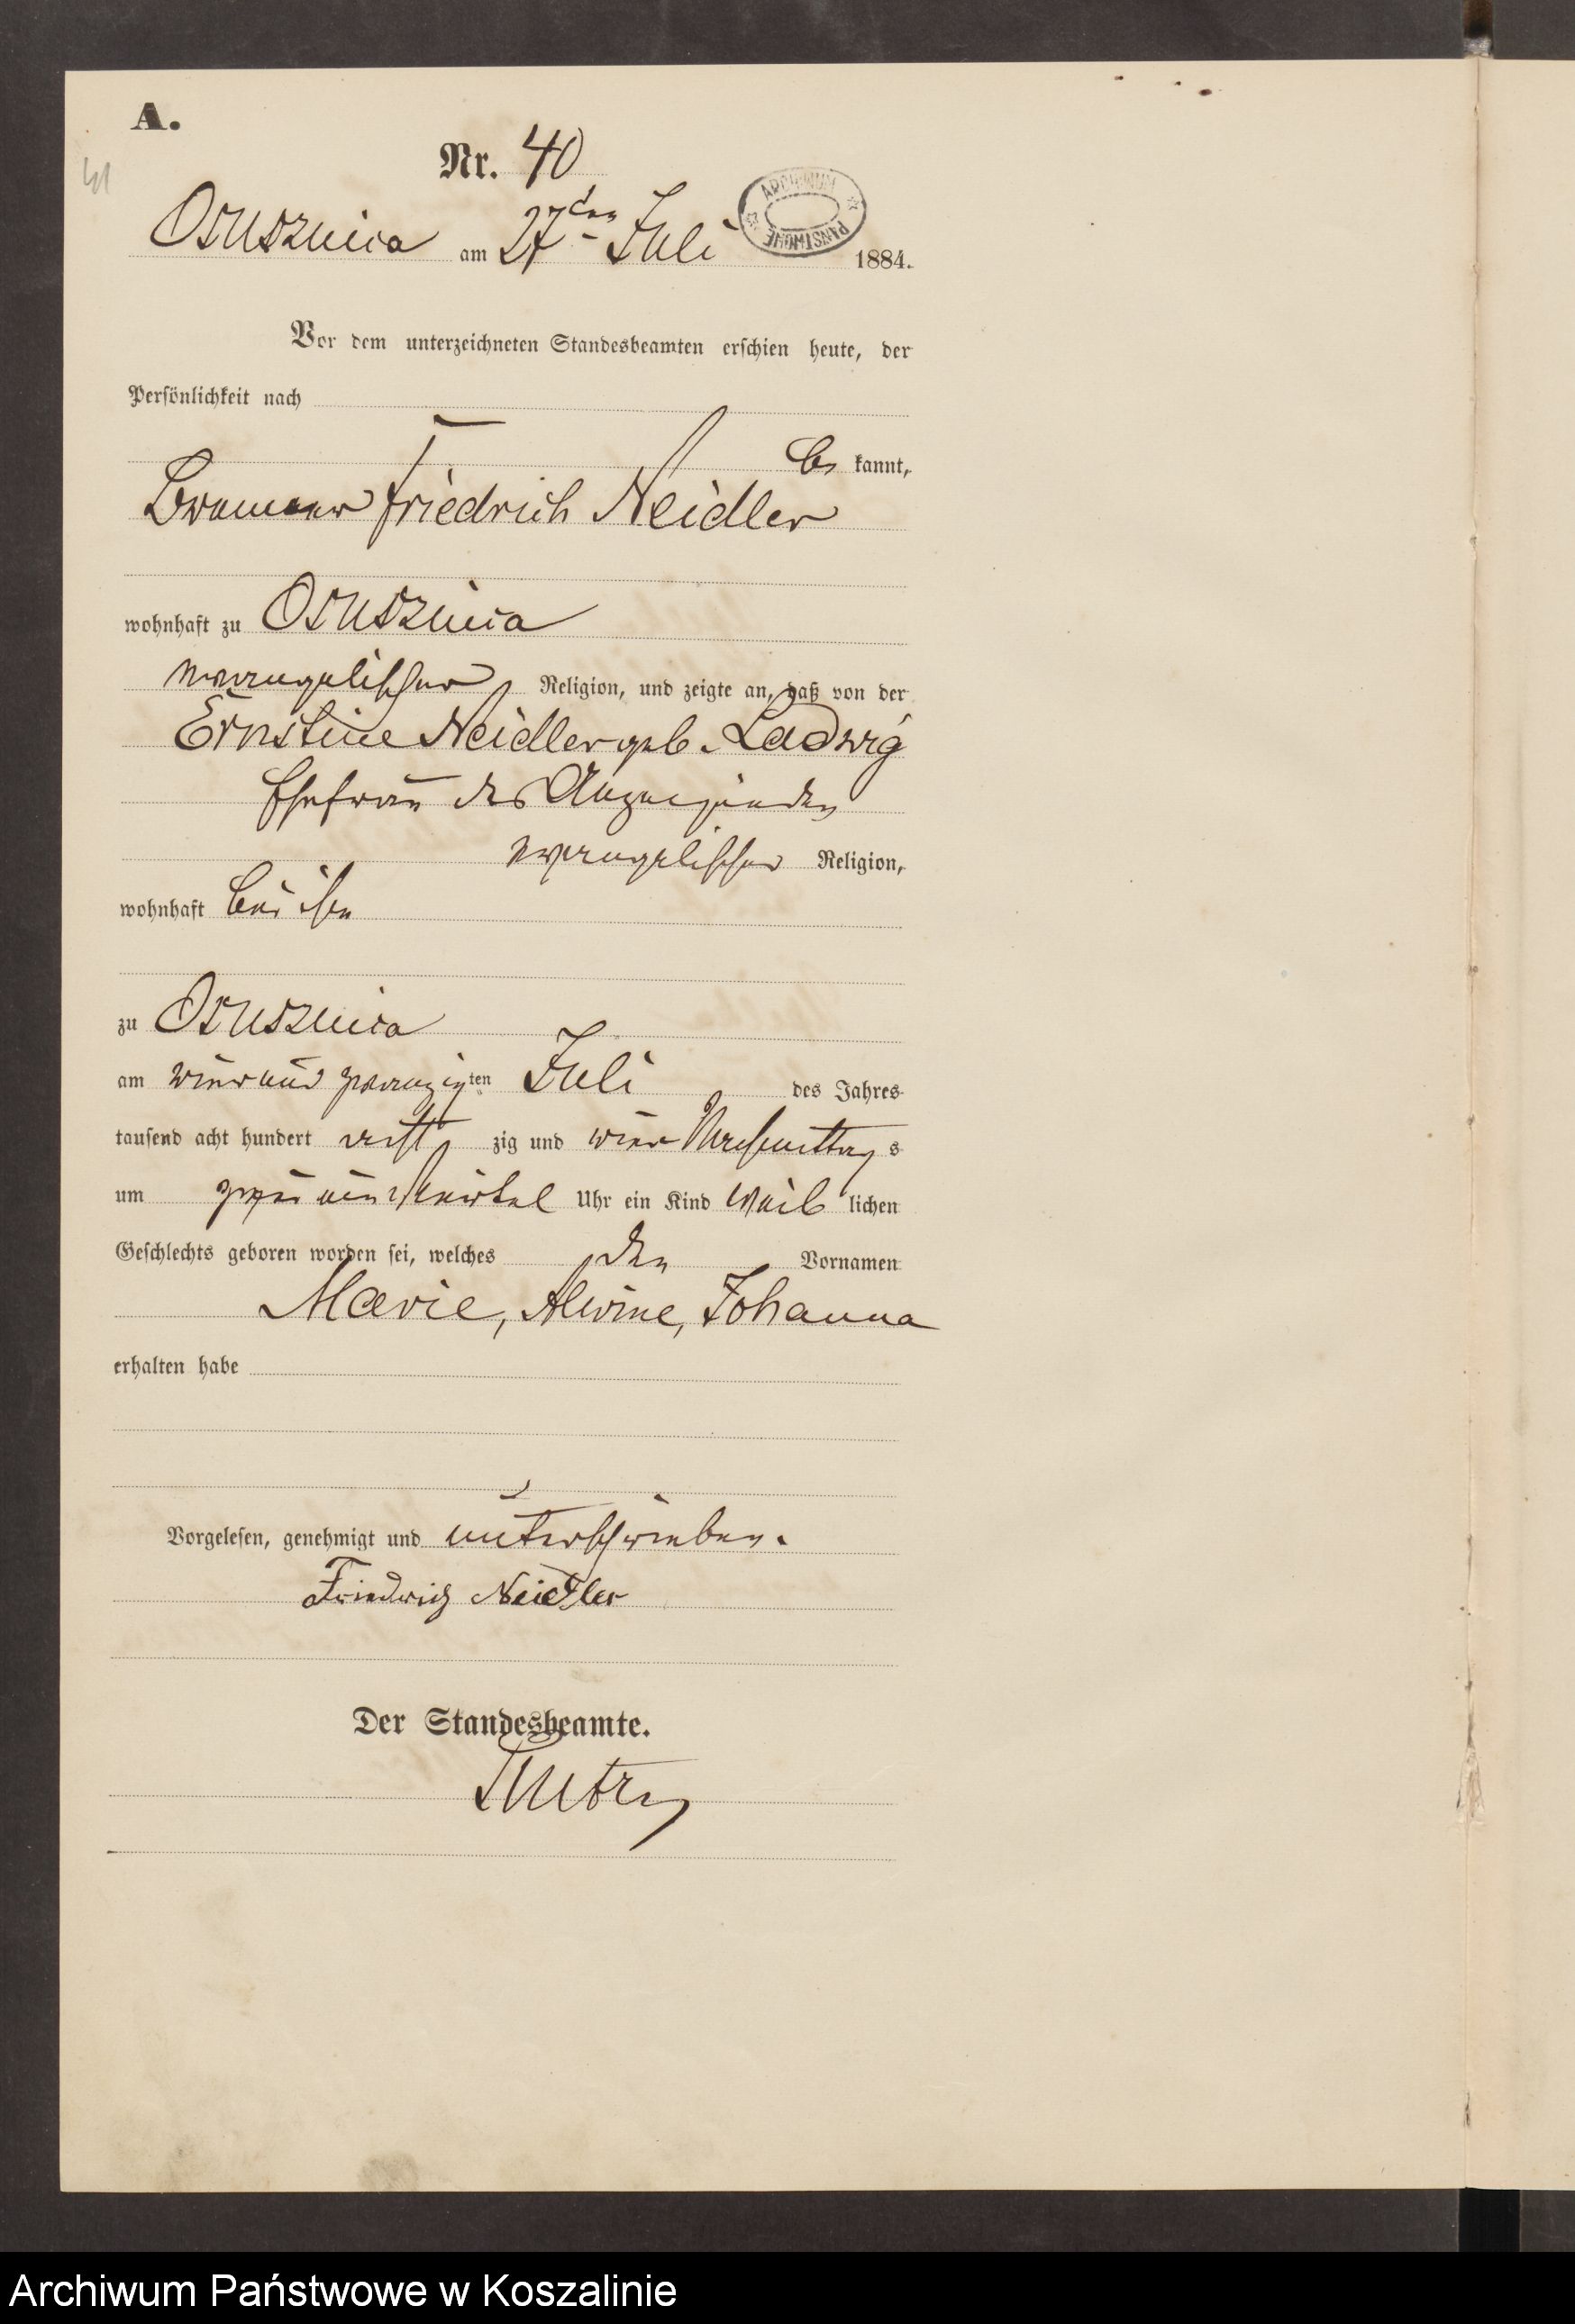 A.
Nr. 40
41
Osusznica am 27ten Juli 1884.
ARCHIWUM PAŃSTWOWE
Vor dem unterzeichneten Standesbeamten erschien heute, der
Persönlichkeit nach
be kannt,
Friedrich Neidler
wohnhaft zu Osusznica
evangelischer Religion, und zeigte an, daß von der
Ernstine Neidler geb. Ladwig
Ehefrau des Anzeigenden
evangelischer Religion,
wohnhaft bei ihm
zu Osusznica
am vier und zwanzigten Juli des Jahres
tausend acht hundert acht zig und vier Nachmittag s
um zwei ein Viertel Uhr ein Kind weib lichen
Geschlechts geboren worden sei, welches den Vornamen
Marie, Alwine, Johanna
erhalten habe
Vorgelesen, genehmigt und unterschrieben.
Friedrich Neidler
Der Standesbeamte.
Archiwum Państwowe w Koszalinie